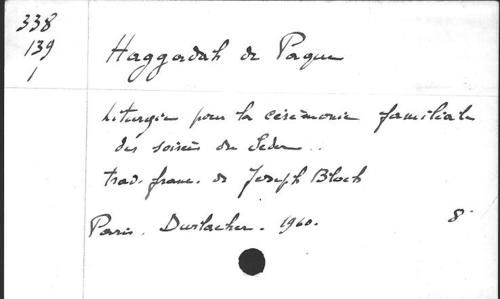 338
139
1
Haggadah de Paque
Liturgie pour la cérémonie familiale
des soirées du Seder ..
trad. franc. de Joseph Bloch
Paris. Durlacher. 1960. 8°